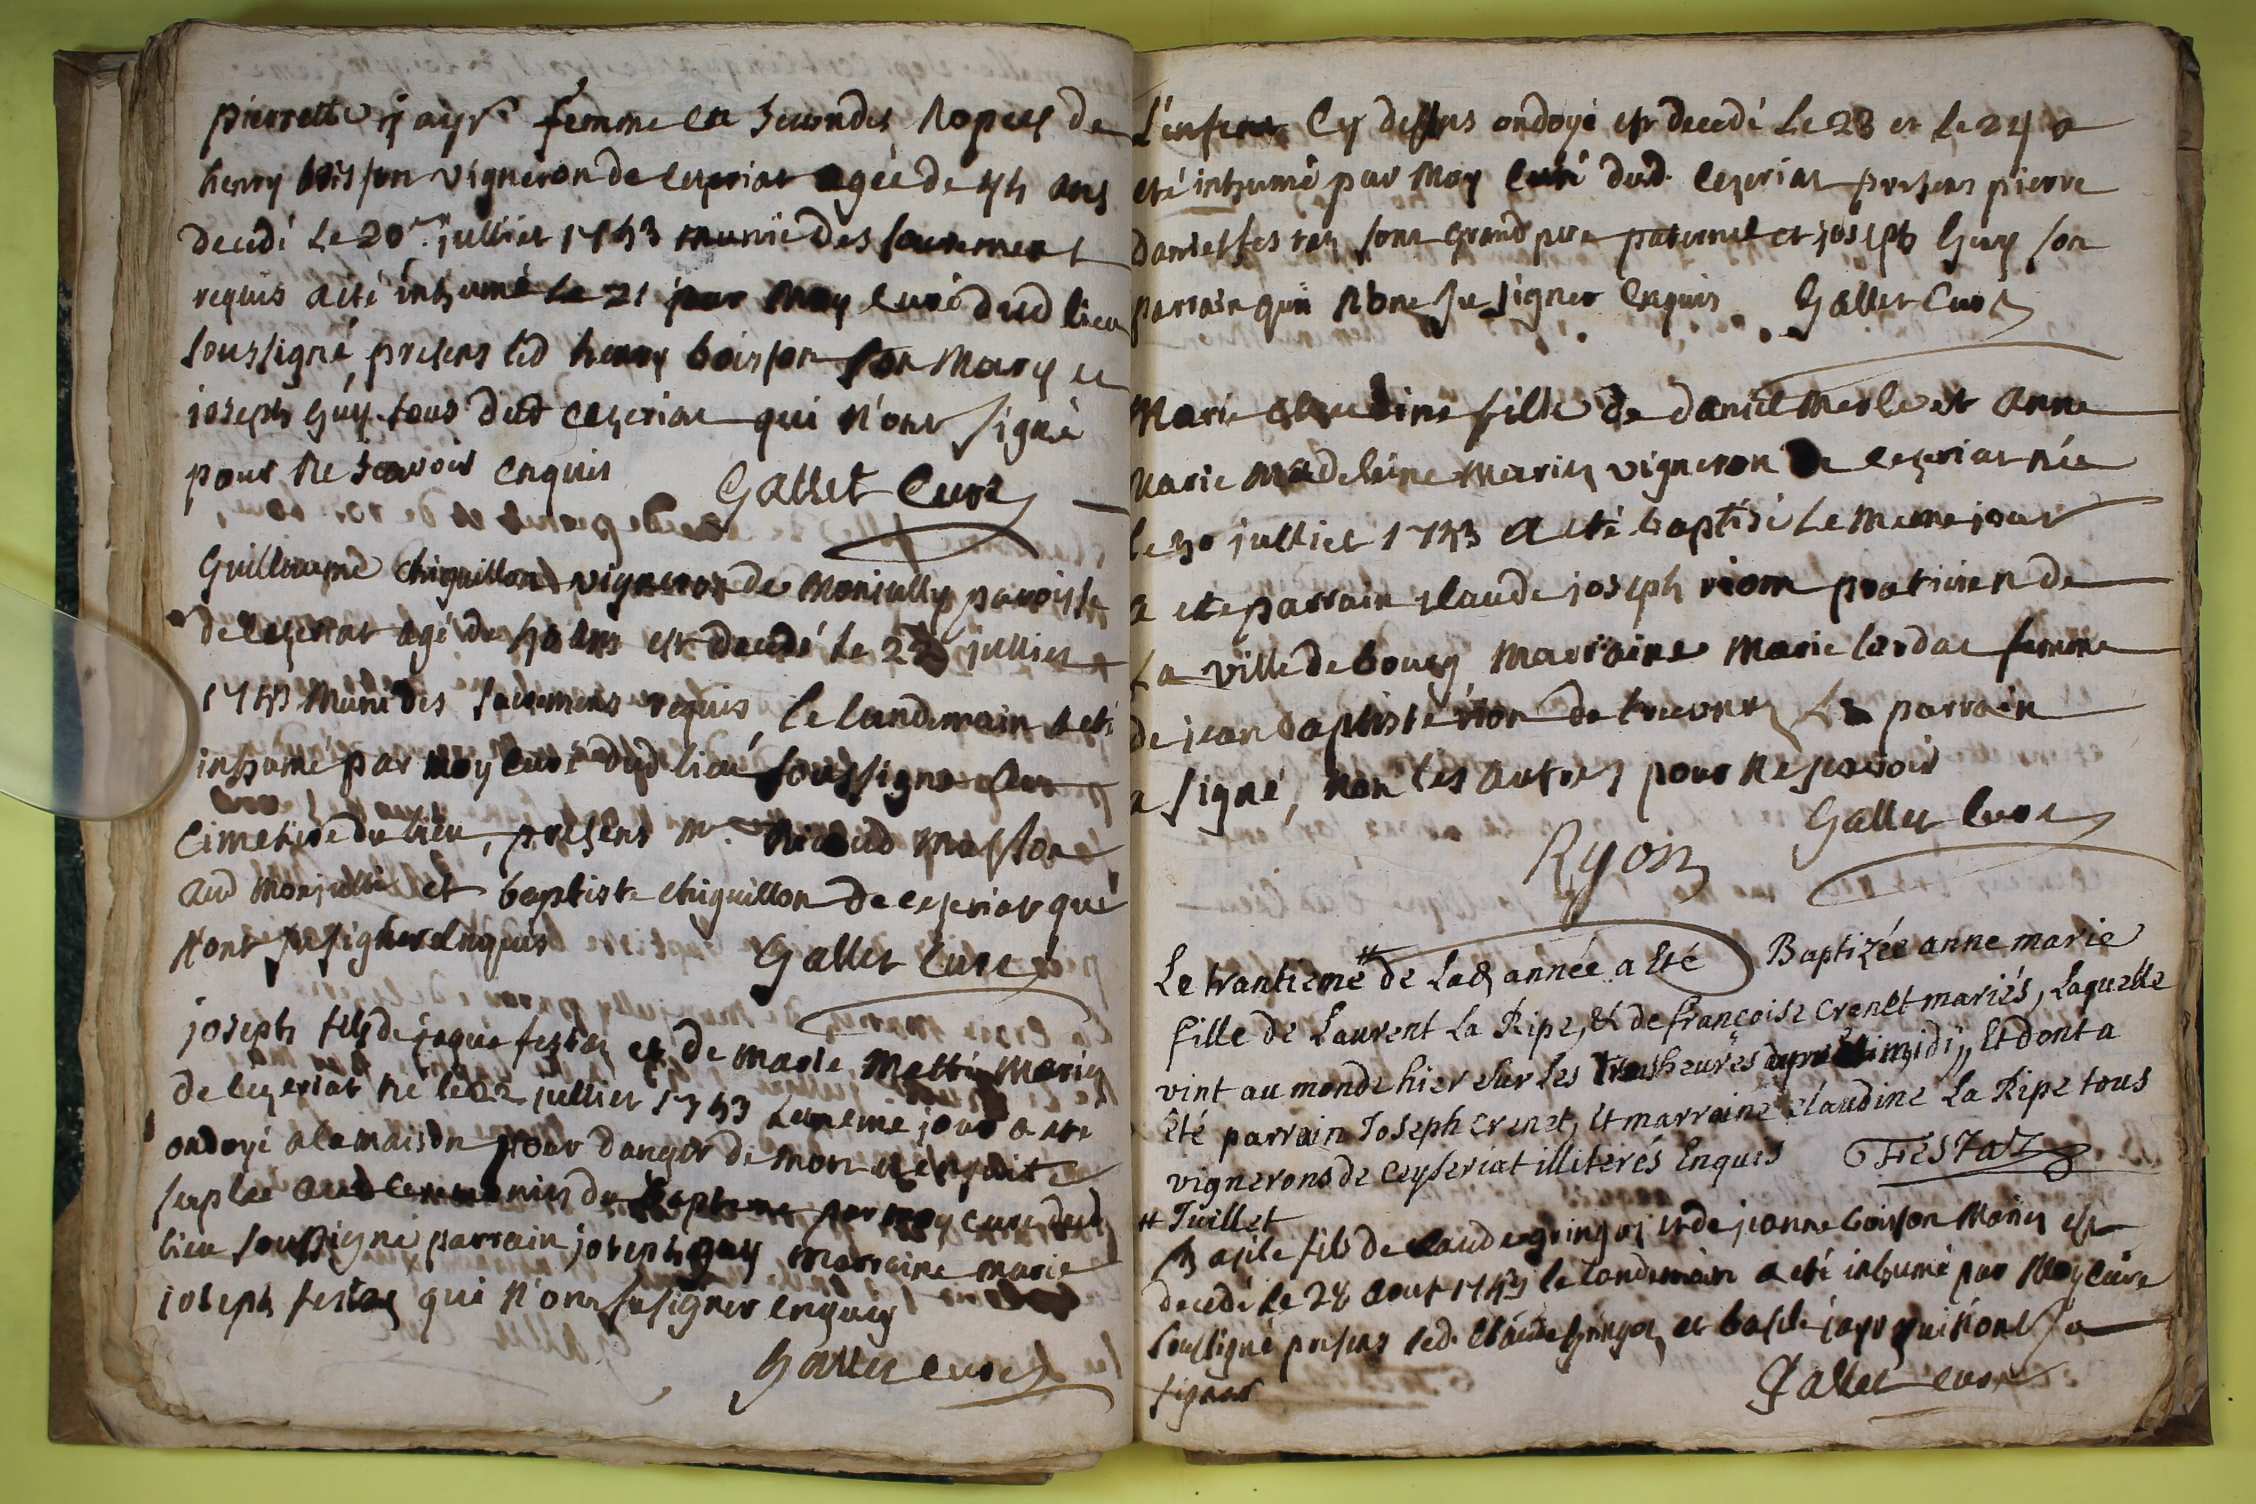 pierrette jayr femme en secondes nopces de
henry boisson vigneron de ceyzeriat agée de 45 ans
decedé le 20en juilliet 1753 munie des sacremens
requis a eté inhumé le 21 par moy curé dud lieu
soussigné, presens led henry boisson son mary et
joseph guy tous dud ceyzeriat qui n'ont signé
pour ne scavoir enquis Gallet Curé
Guillaume chiguillon vigneron de monjully paroisse
de ceyzeriat agé de ans est decedé le 22 juilliet
1753 muni des sacremens requis, le landemain a eté
inhumé par moy curé dud lieu soussigné au
cimetiere du lieu, presens mr. masson
aud monjulli et baptiste chiguillon de ceyzeriat qui
n'ont su signer enquis Gallet Curé
joseph fils de jaque festaz et de marie mariez
de ceyzeriat né le 22 juilliet 1753 le meme jour a eté
ondoyé a la maison pour danger de mort et ensuite
supléé aud ceremonies du bapteme par moy curé dud
lieu soussigné parrain joseph guy marraine marie
joseph festaz qui n'ont su signer enquis
Gallet curé
L'enfant cy dessus ondoyé est decedé le 23 et le 24 a
eté inhumé par moy curé dud. ceyzeriat presens pierre
daniel festaz sont grand pere paternel et joseph guy son
parrain qui n'ont su signer enquis Gallet Curé
Marie claudine fille de daniel merle et anne
marie madeleine mariez vigneron de ceyzeriat née
le 30 juilliet 1753 a eté baptisé le meme jour
a eté parrain claude joseph riom praticien de
la ville de bourg marraine marie cardat femme
de jean baptiste rion de trevonz Le parrain
a signé, non les autres pour ne scavoir
Gallet Curé
Ryon
Le trantieme # de Lad année a Eté Baptizée anne marie
fille de Laurent La Ripe, et de françoise crenet mariés, Laquelle
vint au monde hier sur les trois heures après midi, Et dont a
été parrain Joseph crenet, et marraine claudine La Ripe tous
vignerons de ceyseriat illiterés Enquis FESTAZ
# Juillet
Basile fils de claude gringoz et de jeanne boisson mariez est
decedé le 28 aout 1753 le landemain a eté inhumé par moy curé
soussigné presens led. claude gringoz et basile jayr qui n'ont su
signer Gallet curé